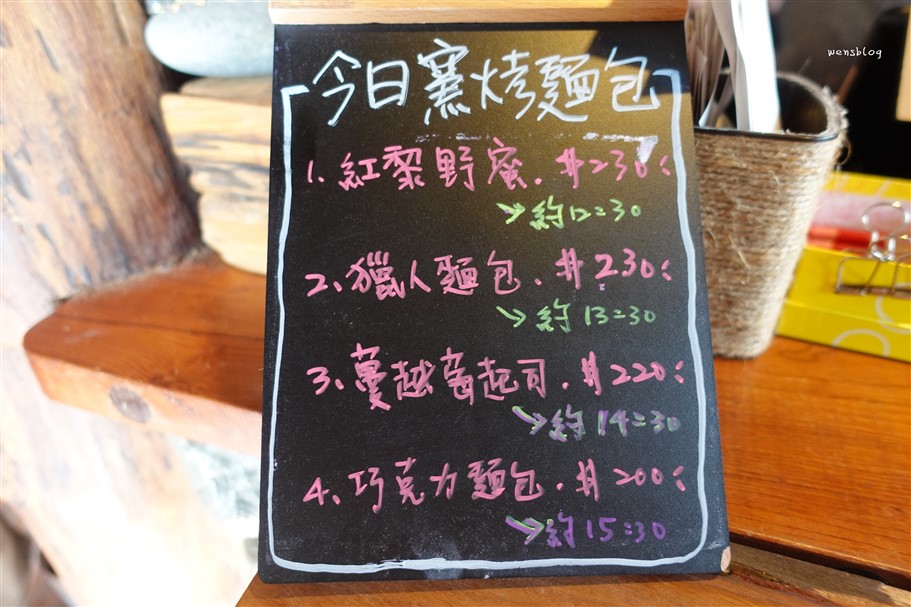 wensblog
今日窯烤麵包
1. 紅藜野蜜. #230:
→約12:30
2、獵人麵包. #230:
→約13:30
3、蔓越莓起司. #220:
→約14:30
4、巧克力麵包. #200:
→約15:30